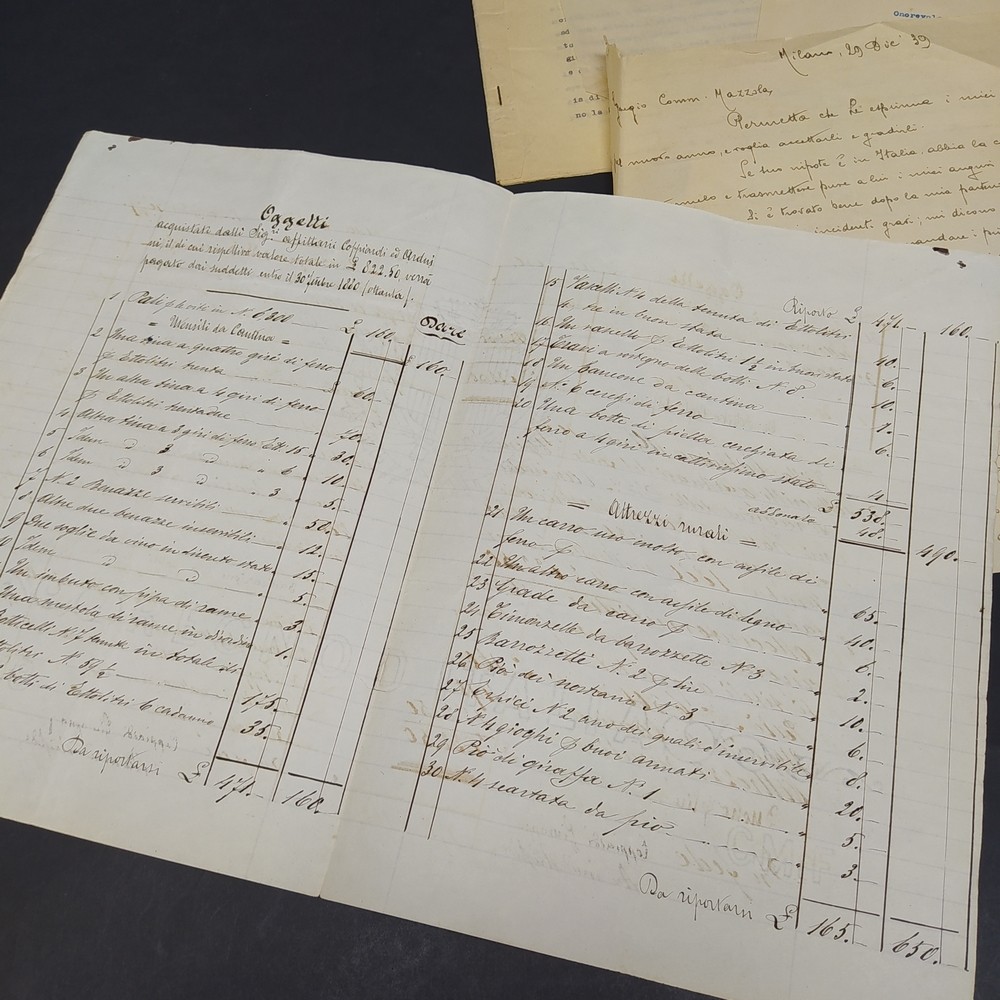 Oggetti
acquistati dalli Sig.ri affittuarii Coppiardi ed
ni, il di cui rispettivo valore totale in £ 822.50 verrà
pagato dai suddetti entro il 30 9mbre 1880 (ottanta).
Dare
1 Pali p. le viti in N. 6200 £ 160. 160.
= Utensili da Cantina =
2 Una tina a quattro giri di ferro
p. Ettolitri trenta 60.
3 Un altra tina a 4 giri di ferro
p. Ettolitri 40.
4 Altra tina a 3 giri di ferro Ett. 15 30.
5 Idem " 3 " " 6 10.
6 Idem " 3 " " 3 5.
7 N. 2 Benazze servibili 50.
8 Altre due benazze inservibili 12.
9 Due soglie da vino in discreto stato 15.
10 Idem 5.
Un imbuto con pipa di rame 3.
Una mestola di rame in 1.
N. 7 tenute in totale di
N. 58½ 175.
botti di Ettolitri 6 cadauno 35.
Da riportarsi £ 471. 160.
Riporto £ 471. 160.
15 Vascelli N. 4 della tenuta di Ettolitri
4 in buon stato 40.
16 Un vasello p. Ettolitri 1½ in buon stato 6.
17 Travi a sostegno delle botti N. 8. 10.
18 Un bancone da cantina 7.
19 N. 6 cerchi di ferro 6.
20 Una botte di piella cerchiata di
ferro a 4 giri in cattivissimo stato 4
£ 538.
48.
490.
= Attrezzi rurali =
21 Un carro uso molto con assile di
ferro p. 65.
22 Un altro carro con assile di legno 40.
23 Grade da carro p. 6.
24 Timonzelle da barozzette N. 3 2.
25 Barozzette N. 2 p. lire 10.
26 Piò dei nostrani N. 3 6.
27 Erpici N. 2 uno dei quali è inservibile 8.
28 N. 4 gioghi p. buoi armati 20.
29 Piò di giraffa N. 1 5.
30 N. 4 da piò 3.
Da riportarsi £ 165. 650.
Onorevole
Milano, 29 Dic. 39
Comm. Mazzola,
Permetta che Le esprima i miei
nuovo anno, e voglia accettarli e gradirli.
Se suo nipote è in Italia, abbia la
e trasmettere pure a lui i miei auguri
Si è trovato bene dopo la mia
incidenti gravi; mi dicono